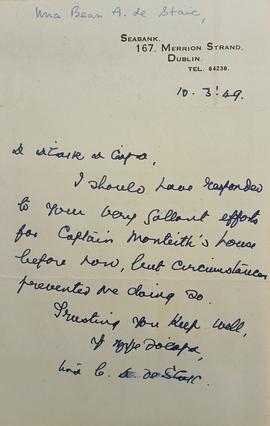 Una Bean A. de Staic,
SEABANK,
167, MERRION STRAND,
DUBLIN.
TEL. 64238.
10. 3. '49.
A a Cara,
I should have responded
to your very gallant efforts
for Captain Monteith's house
before now, but circumstances
prevented me doing so.
Trusting you keep well,
Úna C. de Staic.